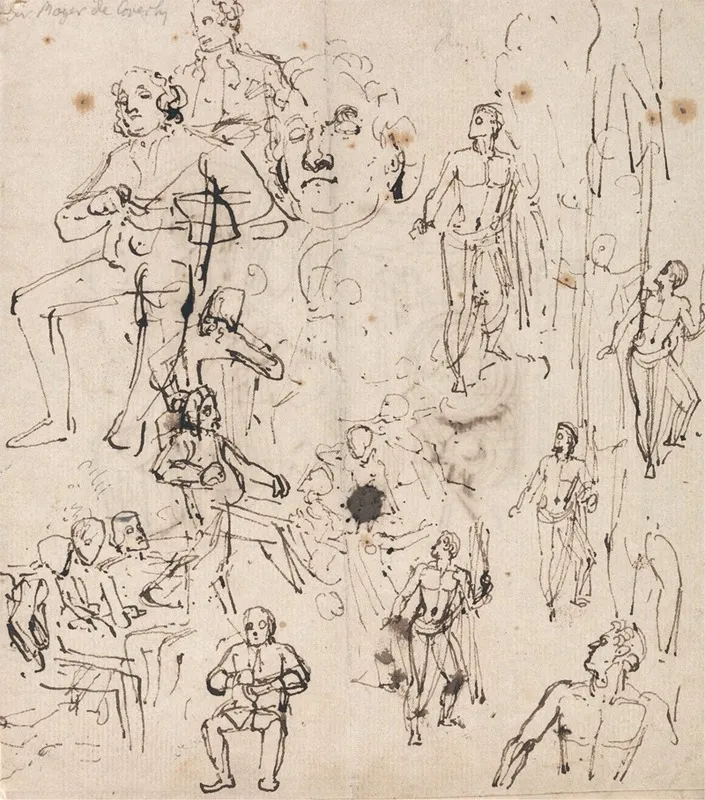 Sir Roger de Coverly